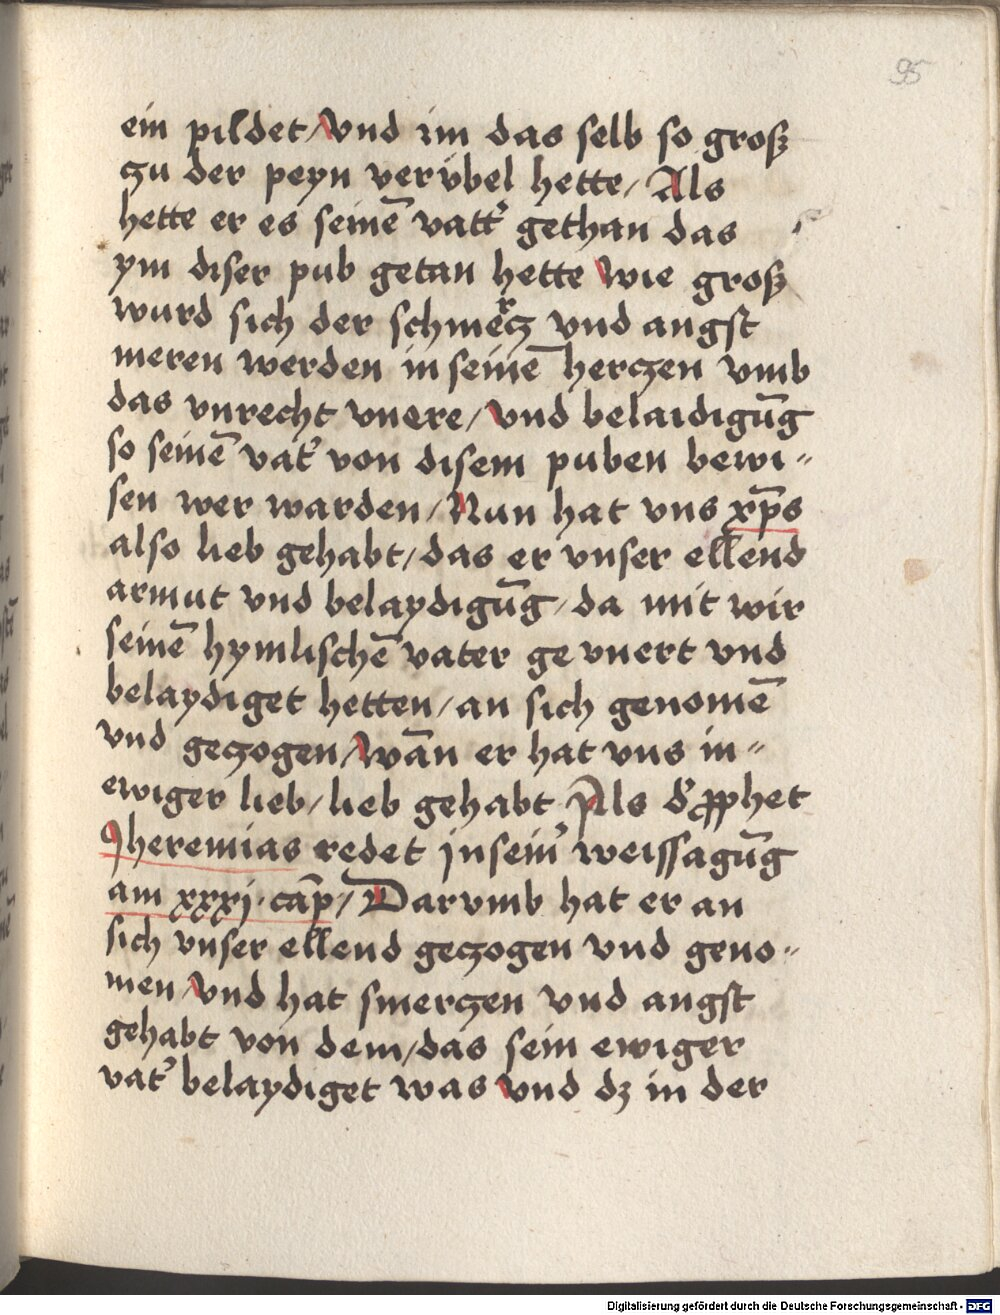 95
ein pildet / vnd im das selb so groß
zu der peyn verübel hette / Als
hette er es seinē vatt' gethan das
ym diser pub getan hette wie groß
wurd sich der schmercz vnd angst
meren werden in seinē herczen vmb
das vnrecht vnere / vnd belaidigūg
so seinē vat' von disem puben bewi⸗
sen wer warden / Nun hat vns xp̄s
also lieb gehabt / das er vnser ellend
armut vnd belaydigūg / da mit wir
seinē hymlischē vater ge vnert vnd
belaydiget hetten / an sich genomē
vnd geczogen / wān er hat vns in⸗
ewiger lieb / lieb gehabt Als d' ꝓphet
Jheremias redet jn sein' weissagūg
am xxxj · cāp / Darvmb hat er an
sich vnser ellend geczogen vnd geno⸗
men / vnd hat smerczen vnd angst
gehabt von dem / das sein ewiger
vat' belaydiget was vnd dz in der
Digitalisierung gefördert durch die Deutsche Forschungsgemeinschaft - DFG